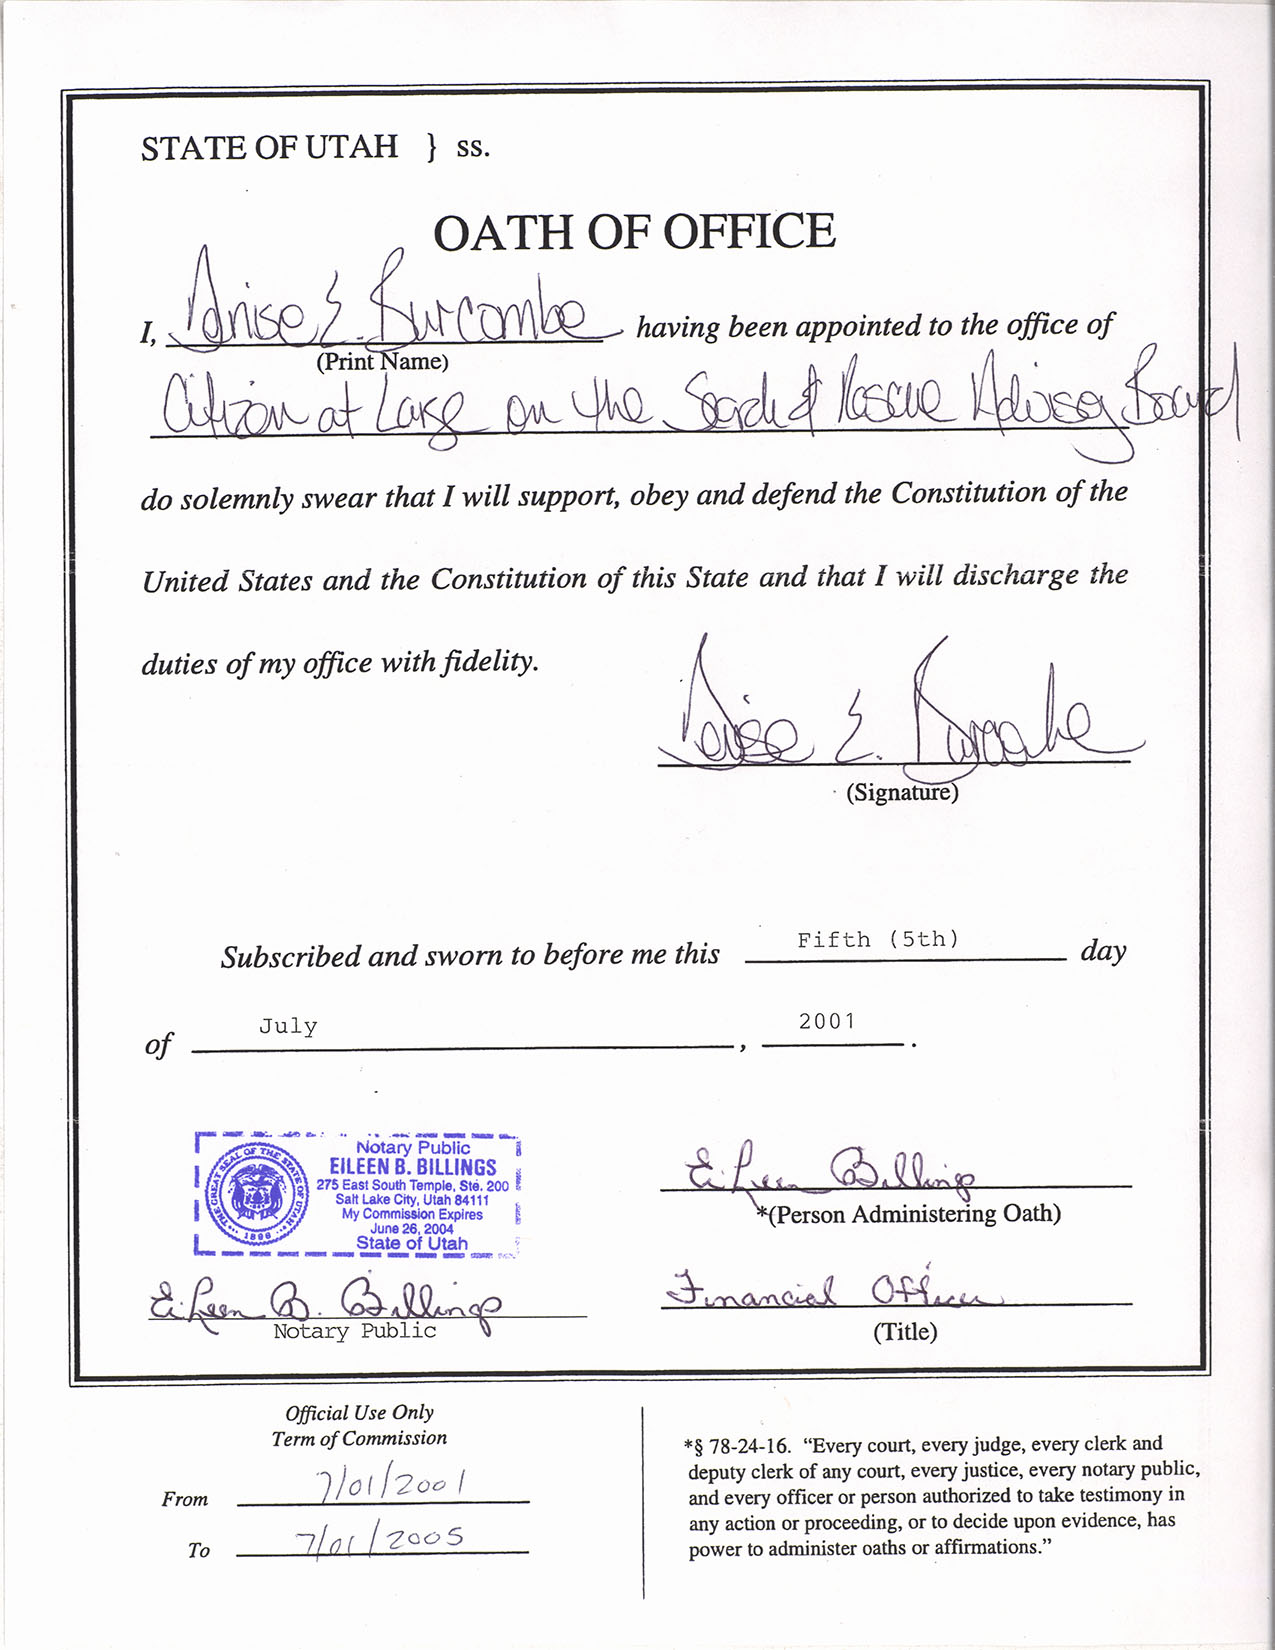 STATE OF UTAH } ss.
OATH OF OFFICE
I, Denise E. Burcombe having been appointed to the office of
(Print Name)
Citizen at Large on the Search & Rescue Advisory Board
do solemnly swear that I will support, obey and defend the Constitution of the
United States and the Constitution of this State and that I will discharge the
duties of my office with fidelity.
Denise E. Burcombe
(Signature)
Subscribed and sworn to before me this Fifth (5th) day
of July, 2001.
Notary Public
EILEEN B. BILLINGS
275 East South Temple, Ste. 200
Salt Lake City, Utah 84111
My Commission Expires
June 26, 2004
State of Utah
THE GREAT SEAL OF THE STATE OF UTAH
1896
Eileen Billings
*(Person Administering Oath)
Eileen B. Billings
Notary Public
Financial Officer
(Title)
Official Use Only
Term of Commission
From 7/01/2001
To 7/01/2005
*§ 78-24-16. “Every court, every judge, every clerk and
deputy clerk of any court, every justice, every notary public,
and every officer or person authorized to take testimony in
any action or proceeding, or to decide upon evidence, has
power to administer oaths or affirmations.”